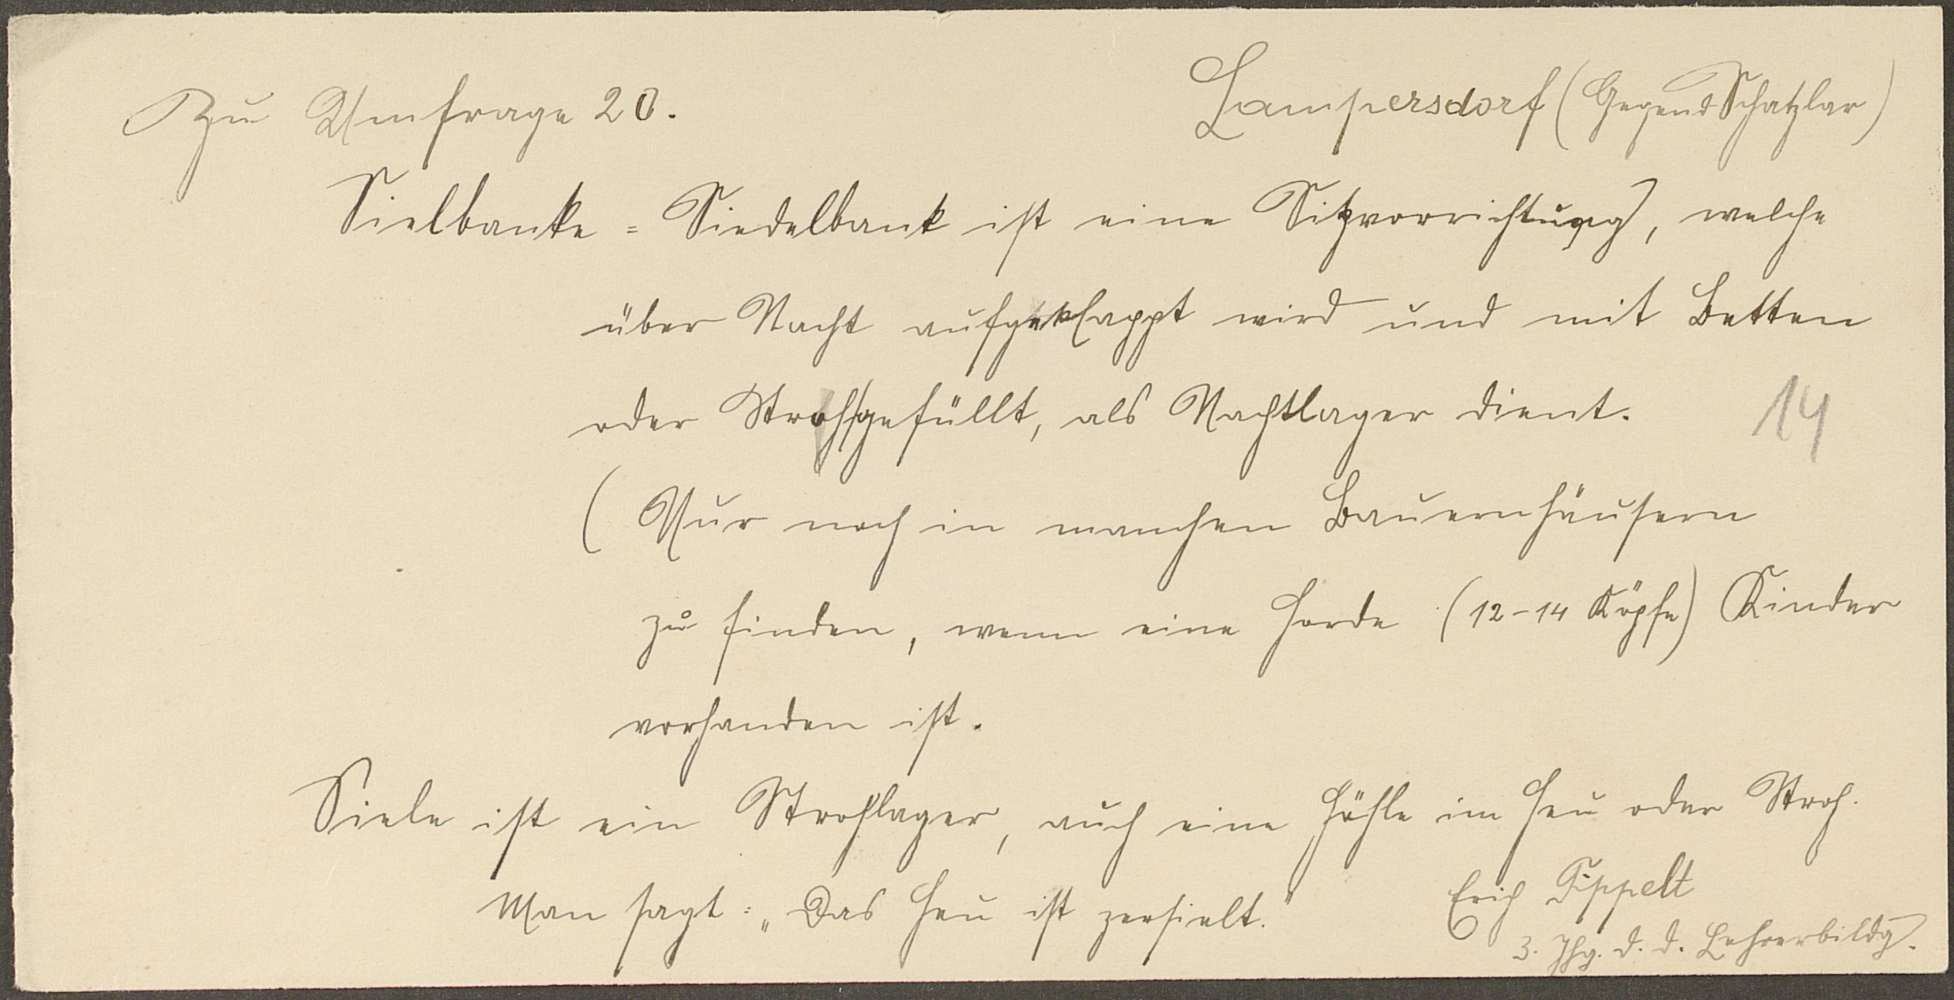 Zu Umfrage 20.
Lampersdorf (Gegend Schatzlar)
Sielbanke = Siedelbank ist eine Sitzvorrichtung, welche
über Nacht aufgeklappt wird und mit Betten
oder Stroh gefüllt, als Nachtlager dient.
14
(Nur noch in manchen Bauernhäusern
zu finden, wenn eine Horde (12-14 Köpfe) Kinder
vorhanden ist.
Siele ist ein Strohlager, auch eine Höhle im Heu oder Stroh.
Man sagt: „Das Heu ist zersielt."
Erich Tippelt
3. Jhg. d. d. Lehrerbildg.